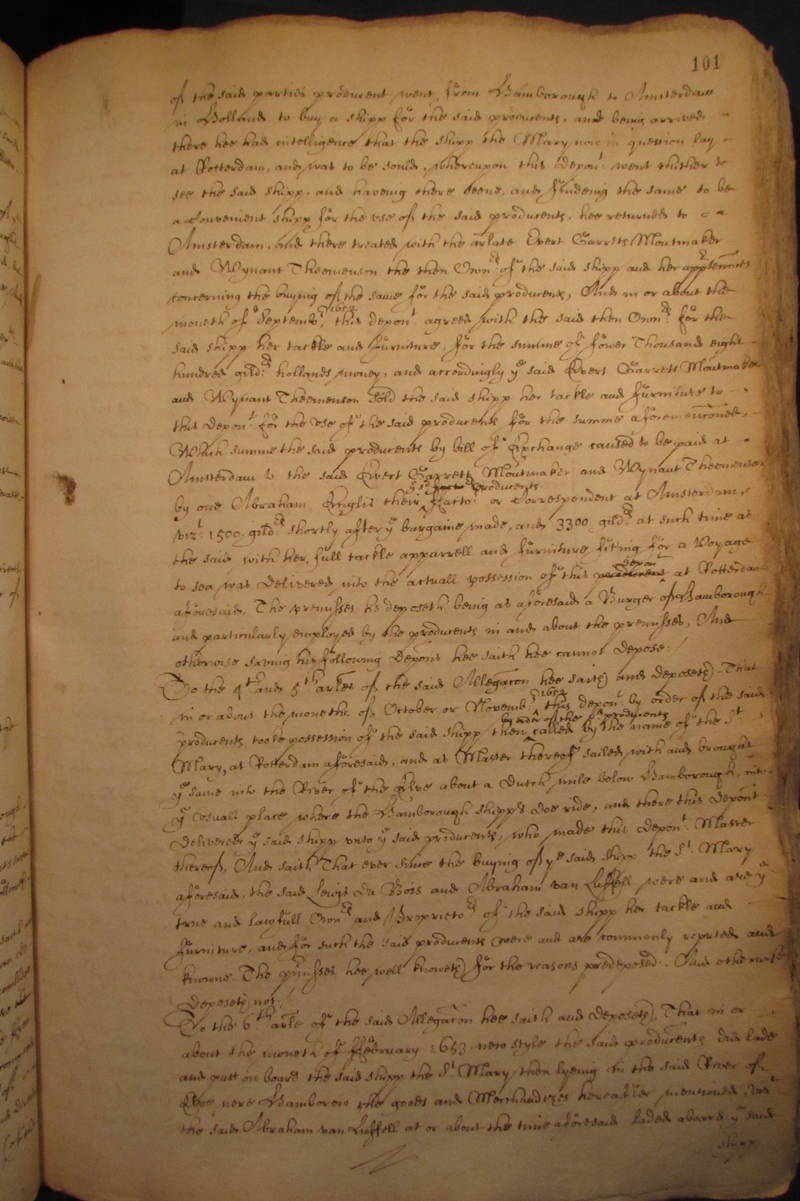 101
of the said parties producent went from Hamborough to Amsterdam
in Holland to buy a shipp for the said producents, and being arrived
there hee had intelligence that the shipp the Mary now in question lay
at Rotterdam, and was to be sould, whereupon this depont went thither to
see the said shipp, and haveing there seene, and findeing the same to be
a convenient shipp for the use of the said producents, hee returned to
Amsterdam, and there treated with the arlate Evert Garrets Moutmaker
and Wynant Theomenson the then Ownrs of the said shipp and her appertennces
concerning the buying of the same for the said producents, And in or about the
moneth of Septembr 1652 this depont agreed with the said then Ownrs for the
said shipp her tackle and furniture, for the summe of fower Thousand eight
hundred gildrs hollands money, and accordingly ye said Evert Garrets Moutmaker
and Wynant Theomenson sold the said shipp her tackle and furniture to
this depont for the use of the said producents for the summe aforementioned,
Which summe the said producents by bill of Exchange caused to be paid at
Amsterdam to the said Evert Garrets Moutmaker and Wynant Theomenson
by one Abraham their ye sd producents Factor or Correspondent at Amsterdam,
vizt 1500 gildrs shortly after ye bargaine made, and 3300 gildrs at such time as
the said with her full tackle apparrell and furniture fitting for a Voyage
to sea was delivered into the actuall possession of this depont at Rotterdam
aforesaid, The premisses he deposeth being as aforesaid a Burger of Hamborough
and particularly employed by the producents in and about the premisses, And
otherwise saving his following deposn hee saith hee cannot depose./
To the 4th and 5th arles of the said Allegaton hee saith and deposeth, That
in or about the moneths of October or Novembr 1652 this depont by order of the said
producents tooke possession of the said shipp then by order of the sd producents called by the name of the St
Mary, at Rotterdam aforesaid, and as Master thereof sailed with and brought
ye same into the River of the Elve about a Dutch mile below Hamborough, into
ye usuall place where the Hamborough shipps doe ride, and there this depont
delivered ye said shipp unto ye said producents, who made this depont Master
thereof, And saith That ever since the buying of ye said shipp the St Mary
aforesaid, the said Lewis Du Bois and Abraham van Luffell were and are ye
true and lawfull Ownrs and Proprietors of the said shipp her tackle and
furniture, and for such the said producents were and are commonly reputed and
knowne. The premisses hee well knoweth for the reasons predeposed. And otherwise
deposeth not./
To the 6th arle of the said Allegaton hee saith and deposeth, That in or
about the moneth of ffebruary 1653 new style the said producents did lade
and putt on board the said shipp the St Mary then lyeing in the said River of
Elve, nere Hamborow the goods and Merchandizes hereafter mentioned, vizt
the said Abraham van Luffell at or about the time aforesaid laded aboard ye said
shipp